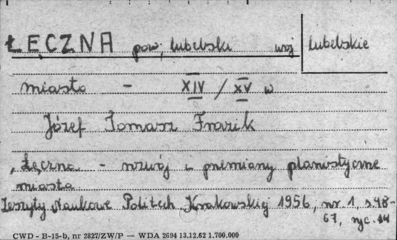 ŁĘCZNA pow. lubelski woj lubelskie
miasto - XIV / XV w
Józef Tomasz Frazik
"Łęczna - rozwój i przemiany planistyczne
miasta
Zeszyty Naukowe Politech Krakowskiej 1956, nr. 1, s. 48-
67, ryc. 14
CWD - B-15-b, nr 2827/ZW/P — WDA 2694 13.12.62 1.700.000